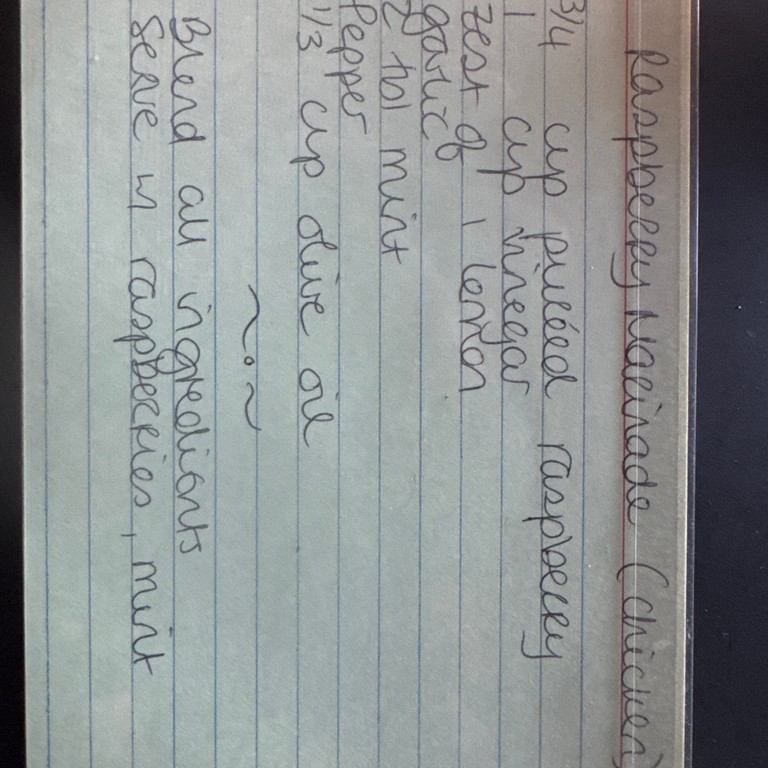 Raspberry Marinade (chicken)
3/4 cup puréed raspberry
1 cup vinegar
zest of 1 lemon
garlic
2 tbl mint
Pepper
1/3 cup olive oil
~·~
Blend all ingredients
Serve w raspberries, mint